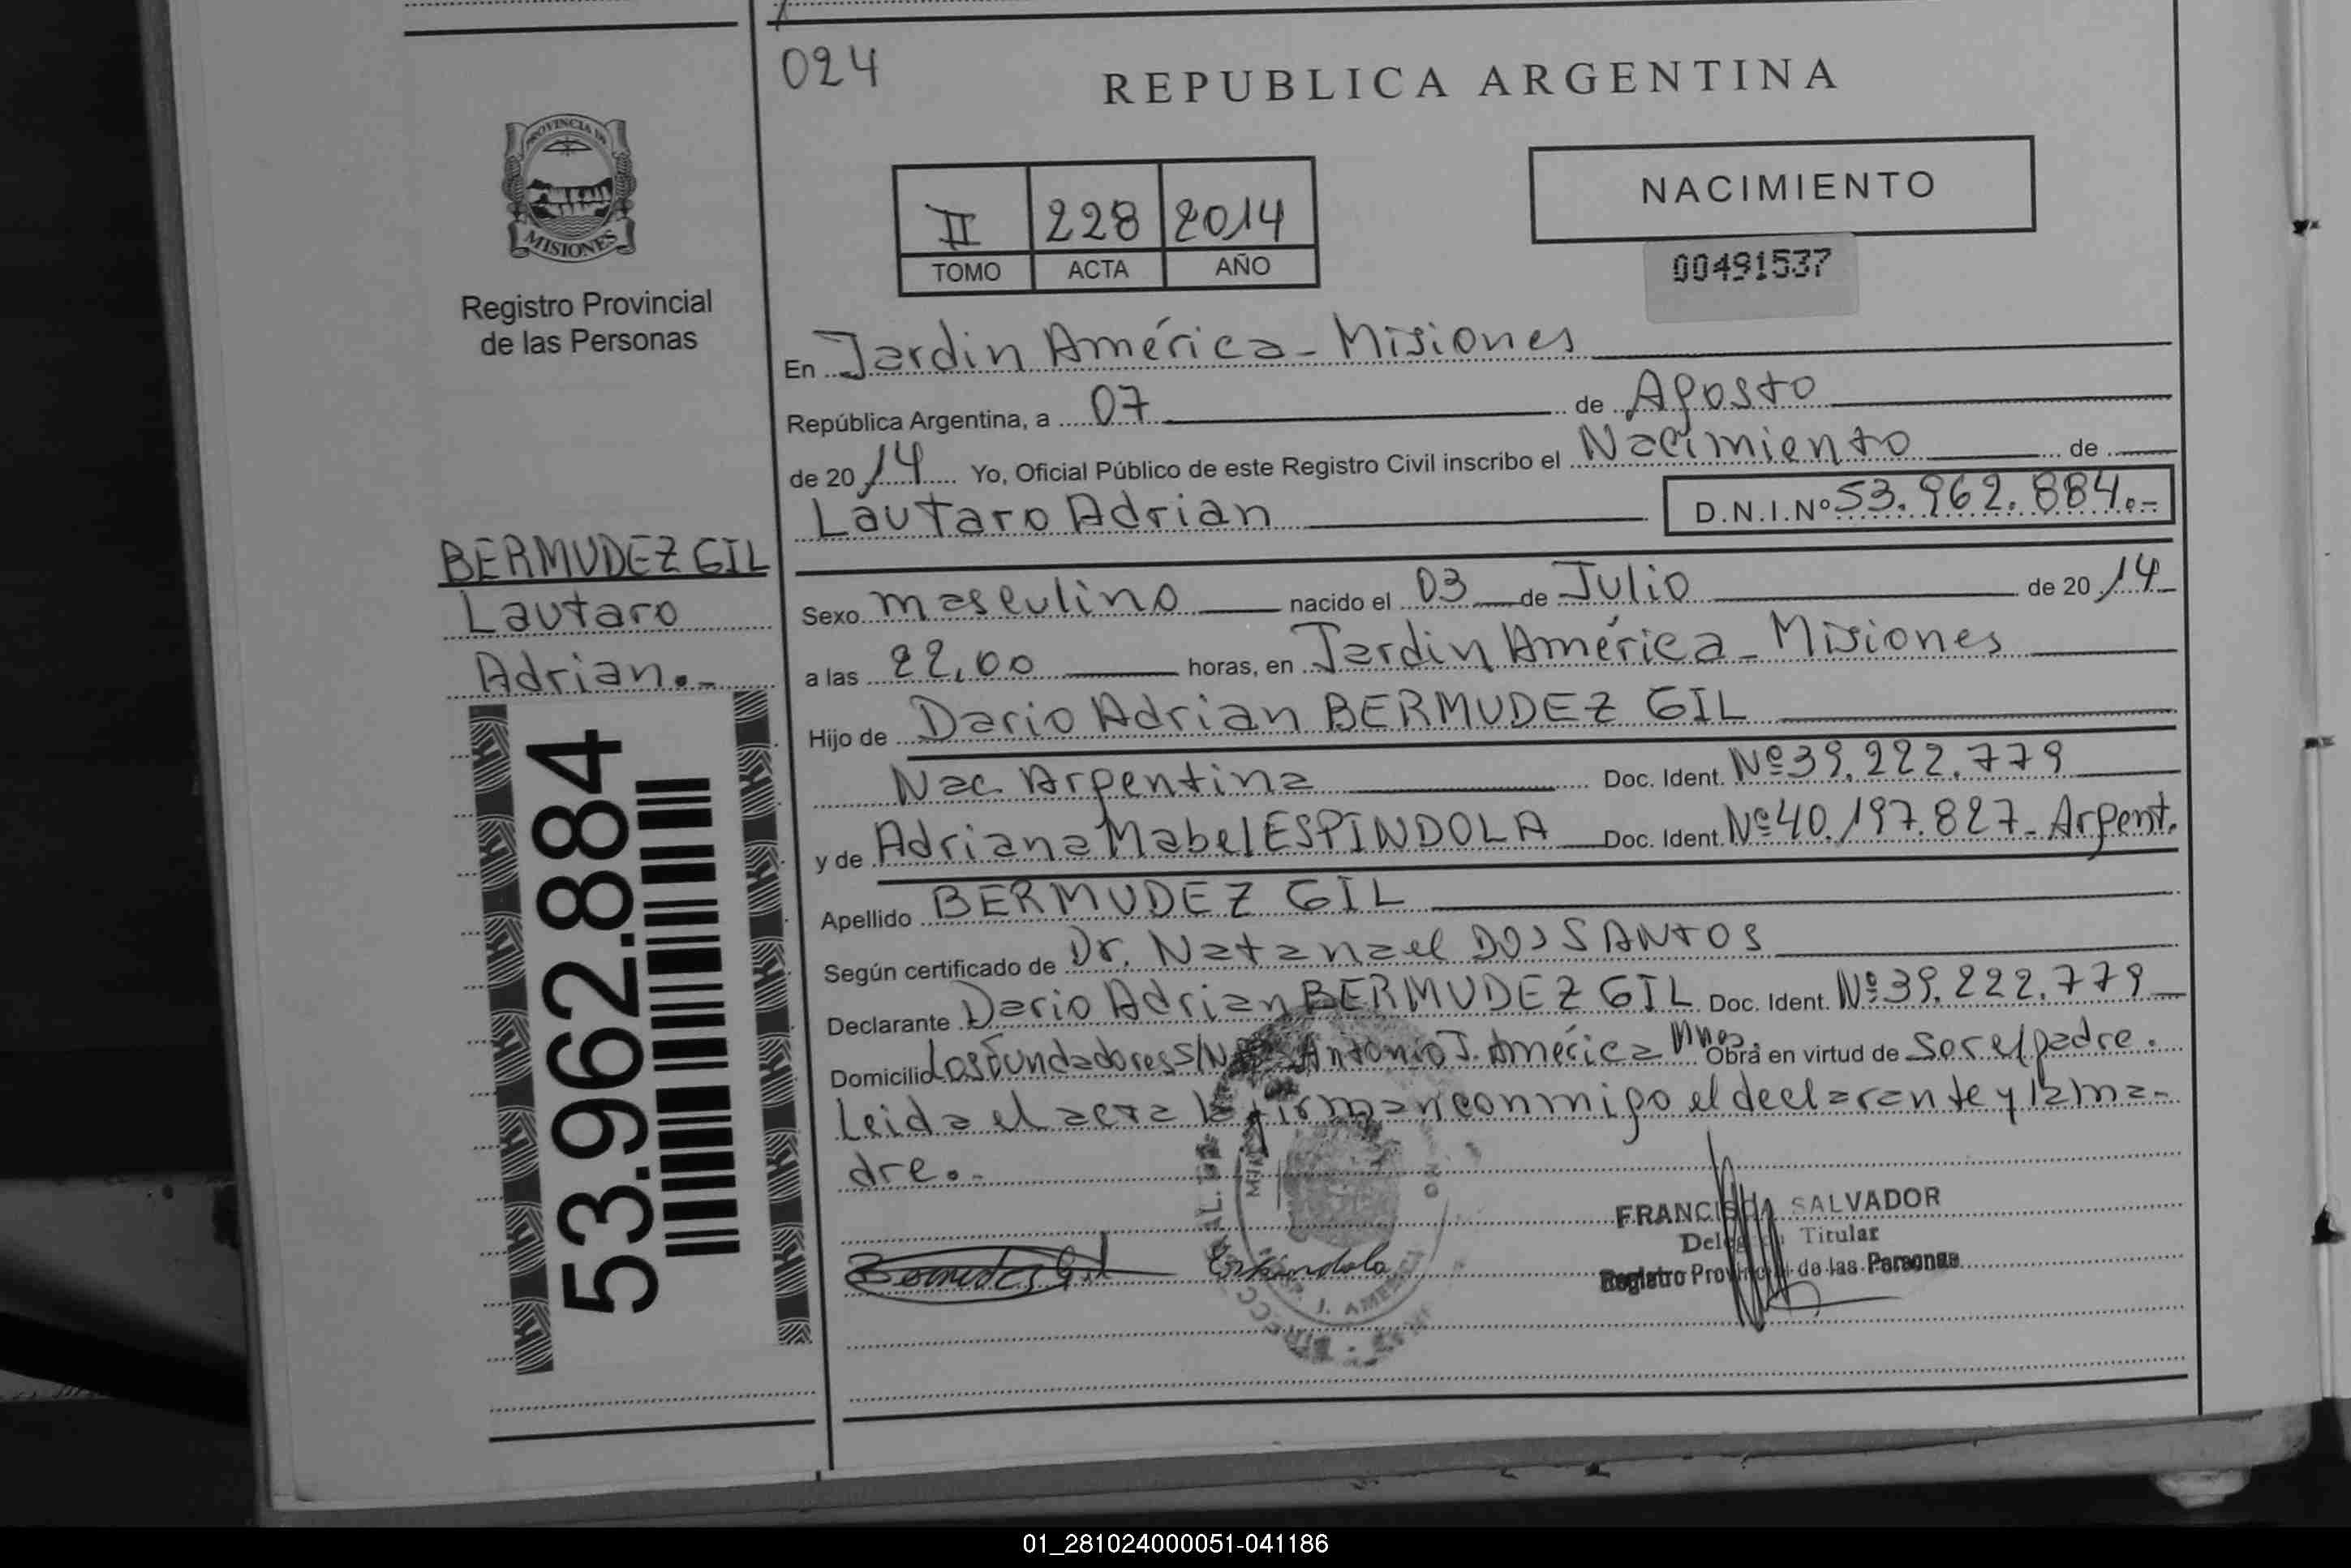 024
REPUBLICA ARGENTINA
PROVINCIA DE
MISIONES
Registro Provincial
de las Personas
II 228 2014
TOMO ACTA AÑO
NACIMIENTO
00491537
En Jardin América - Misiones
República Argentina, a 07 de Agosto
de 2014 Yo, Oficial Público de este Registro Civil inscribo el Nacimiento de
Lautaro Adrian D.N.I.Nº 53.962.884.-
BERMUDEZ GIL
Lautaro
Adrian.-
53.962.884
Sexo masculino nacido el 03 de Julio de 2014
a las 22,00 horas, en Jardin América - Misiones
Hijo de Dario Adrian BERMUDEZ GIL
Nac. Argentina Doc. Ident. Nº 39.222.779
y de Adriana Mabel ESPINDOLA Doc. Ident. Nº 40.197.827 - Argent.
Apellido BERMUDEZ GIL
Según certificado de Dr. Natanael DOS SANTOS
Declarante Dario Adrian BERMUDEZ GIL Doc. Ident. Nº 39.222.779
Domicilio Los Fundadores S/N Antonio J. América Mnes. Obra en virtud de ser el padre.
Leida el acta la firman conmigo el declarante y la ma-
dre.-
Bermudez Gil Espindola
FRANCISCA SALVADOR
Delegada Titular
Registro Provincial de las Personas
J. AMERICA
01_281024000051-041186